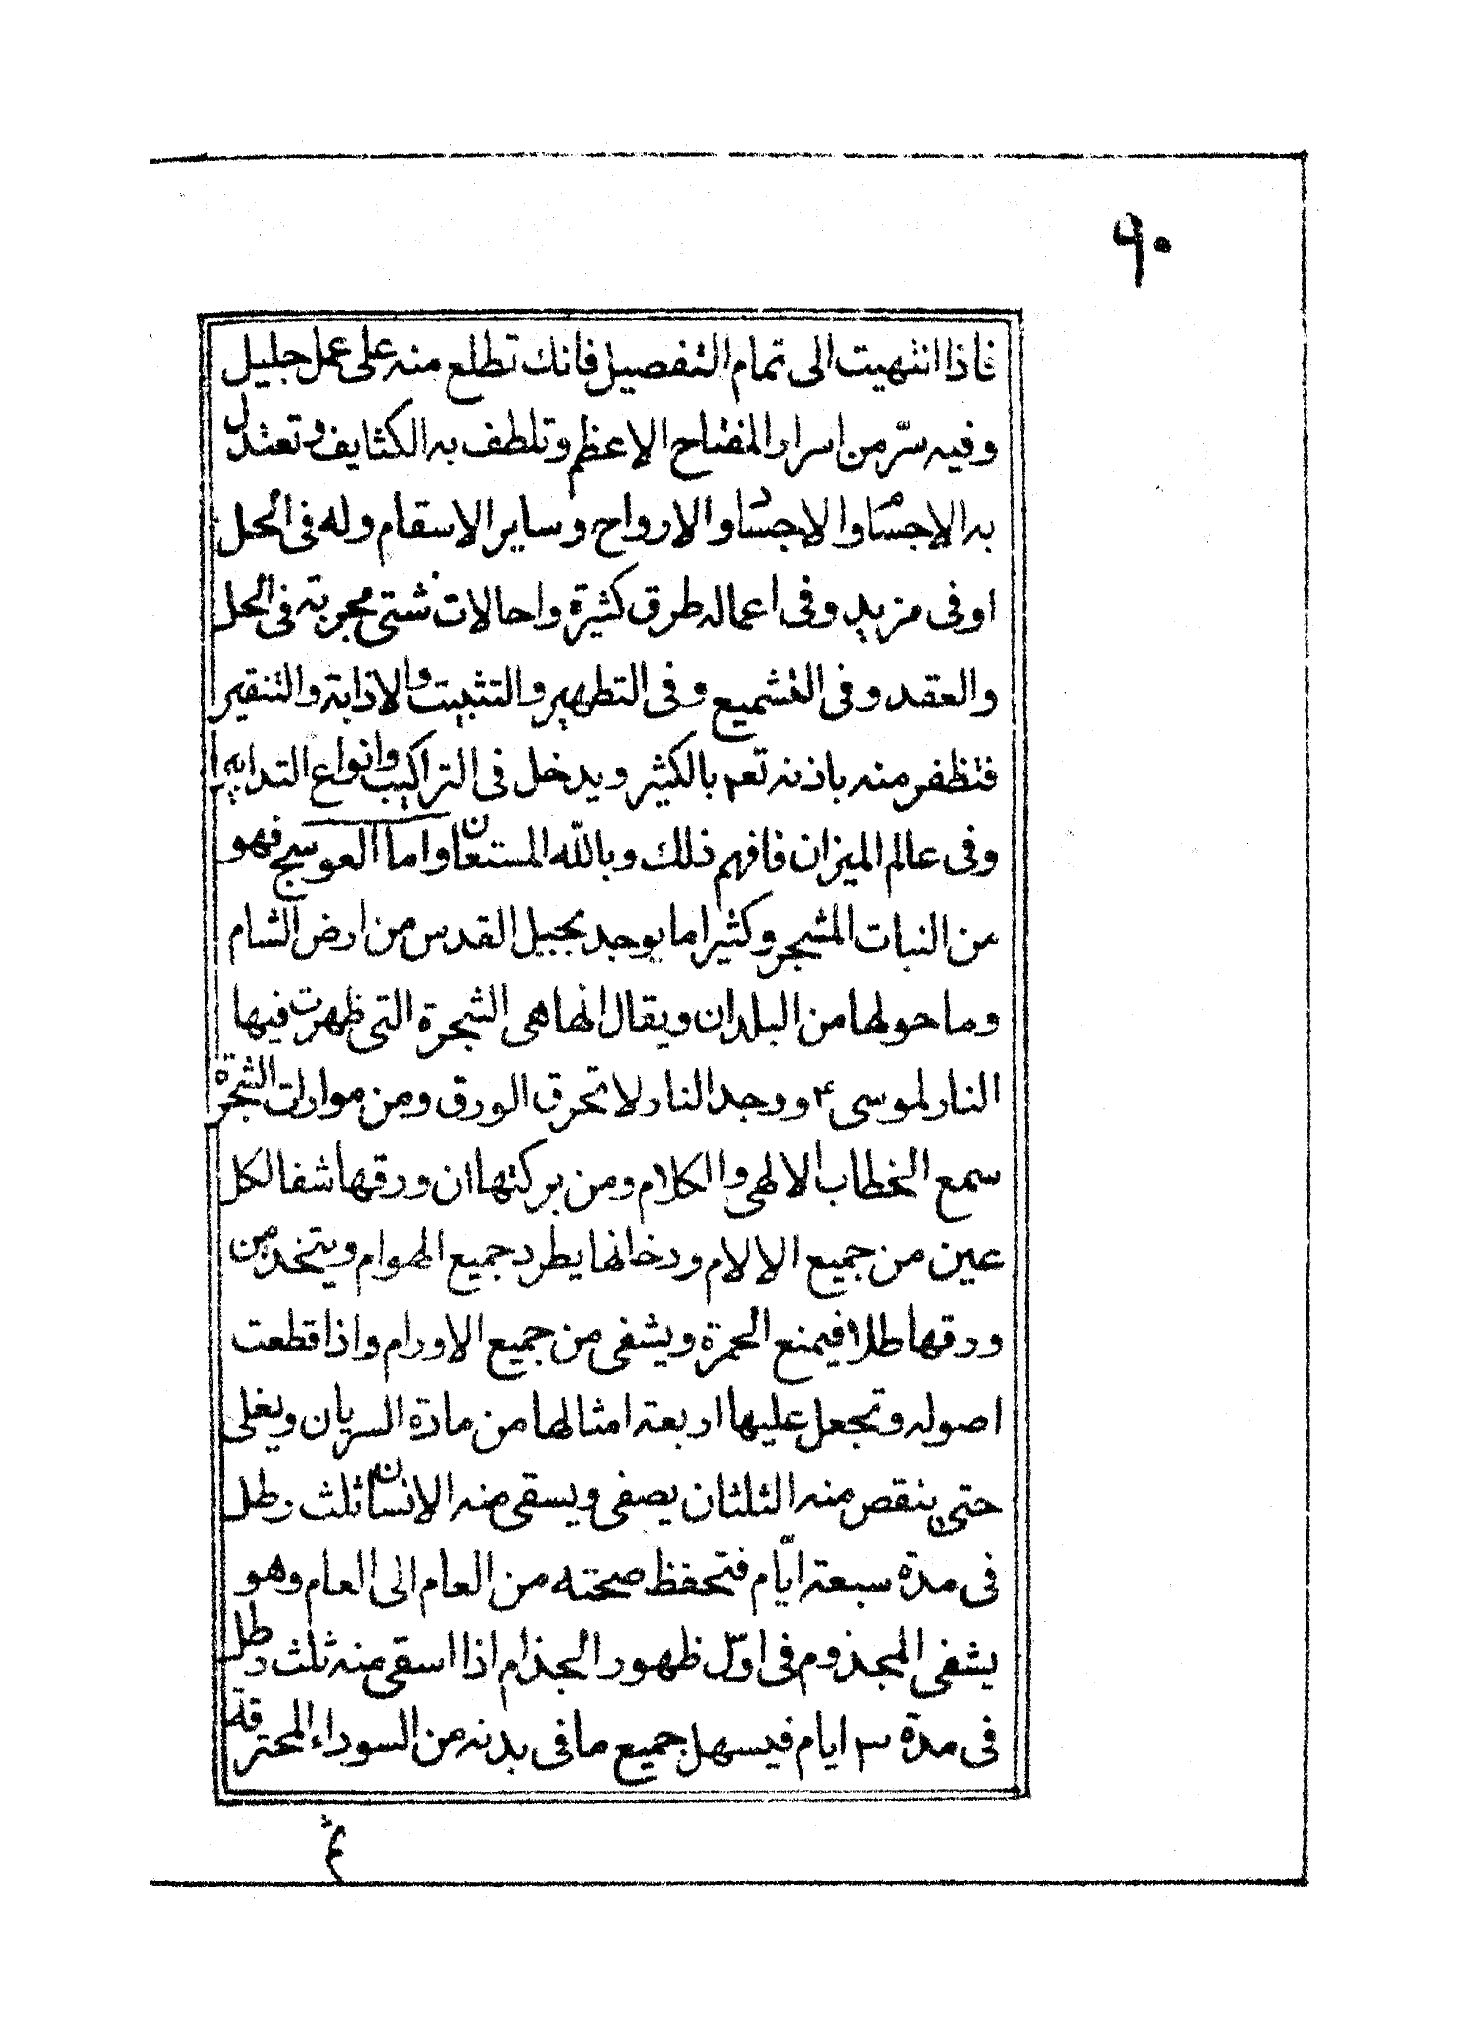 ٩٠
فاذا انتهيت الى تمام التفصيل فانك تطلع منه على عمل جليل
وفيه سرّ من اسرار المفتاح الاعظم وتلطف به الكثايف وتعتدل
به الاجسام والاجساد والارواح وساير الاسقام وله فى الحل
او فى مزيد وفى اعماله طرق كثيرة واحالات شتى مجربة فى الحل
والعقد وفى التشميع وفى التطهير والتثبيت والاذابة والتنقير
فتظفر منه باذنه تعم بالكثير ويدخل فى التراكيب وانواع التدابير
وفى عالم الميزان فافهم ذلك وبالله المستعان واما العوسج فهو
من النبات المشجر وكثيرا ما يوجد بجبيل القدس من ارض الشام
وما حولها من البلدان ويقال انها هى الشجرة التى ظهرت فيها
النار لموسى ٤ ووجد النار لا تحرق الورق ومن موارات الشجرة
سمع الخطاب الالهى والكلام ومن بركتها ان ورقها شفا لكل
عين من جميع الالام ودخانها يطرد جميع الهوام ويتخذ من
ورقها طلا فيمنع الحمرة ويشفى من جميع الاورام واذا قطعت
اصوله وتجعل عليها اربعة امثالها من مادة السريان ويغلى
حتى ينقص منه الثلثان يصفى ويسقى منه الانسان ثلث رطل
فى مدة سبعة ايّام فتحفظ صحته من العام الى العام وهو
يشفى المجذوم فى اوّل ظهور الجذام اذا اسقى منه ثلث رطل
فى مدة ٣ ايام فيسهل جميع ما فى بدنه من السوداء المحترقة